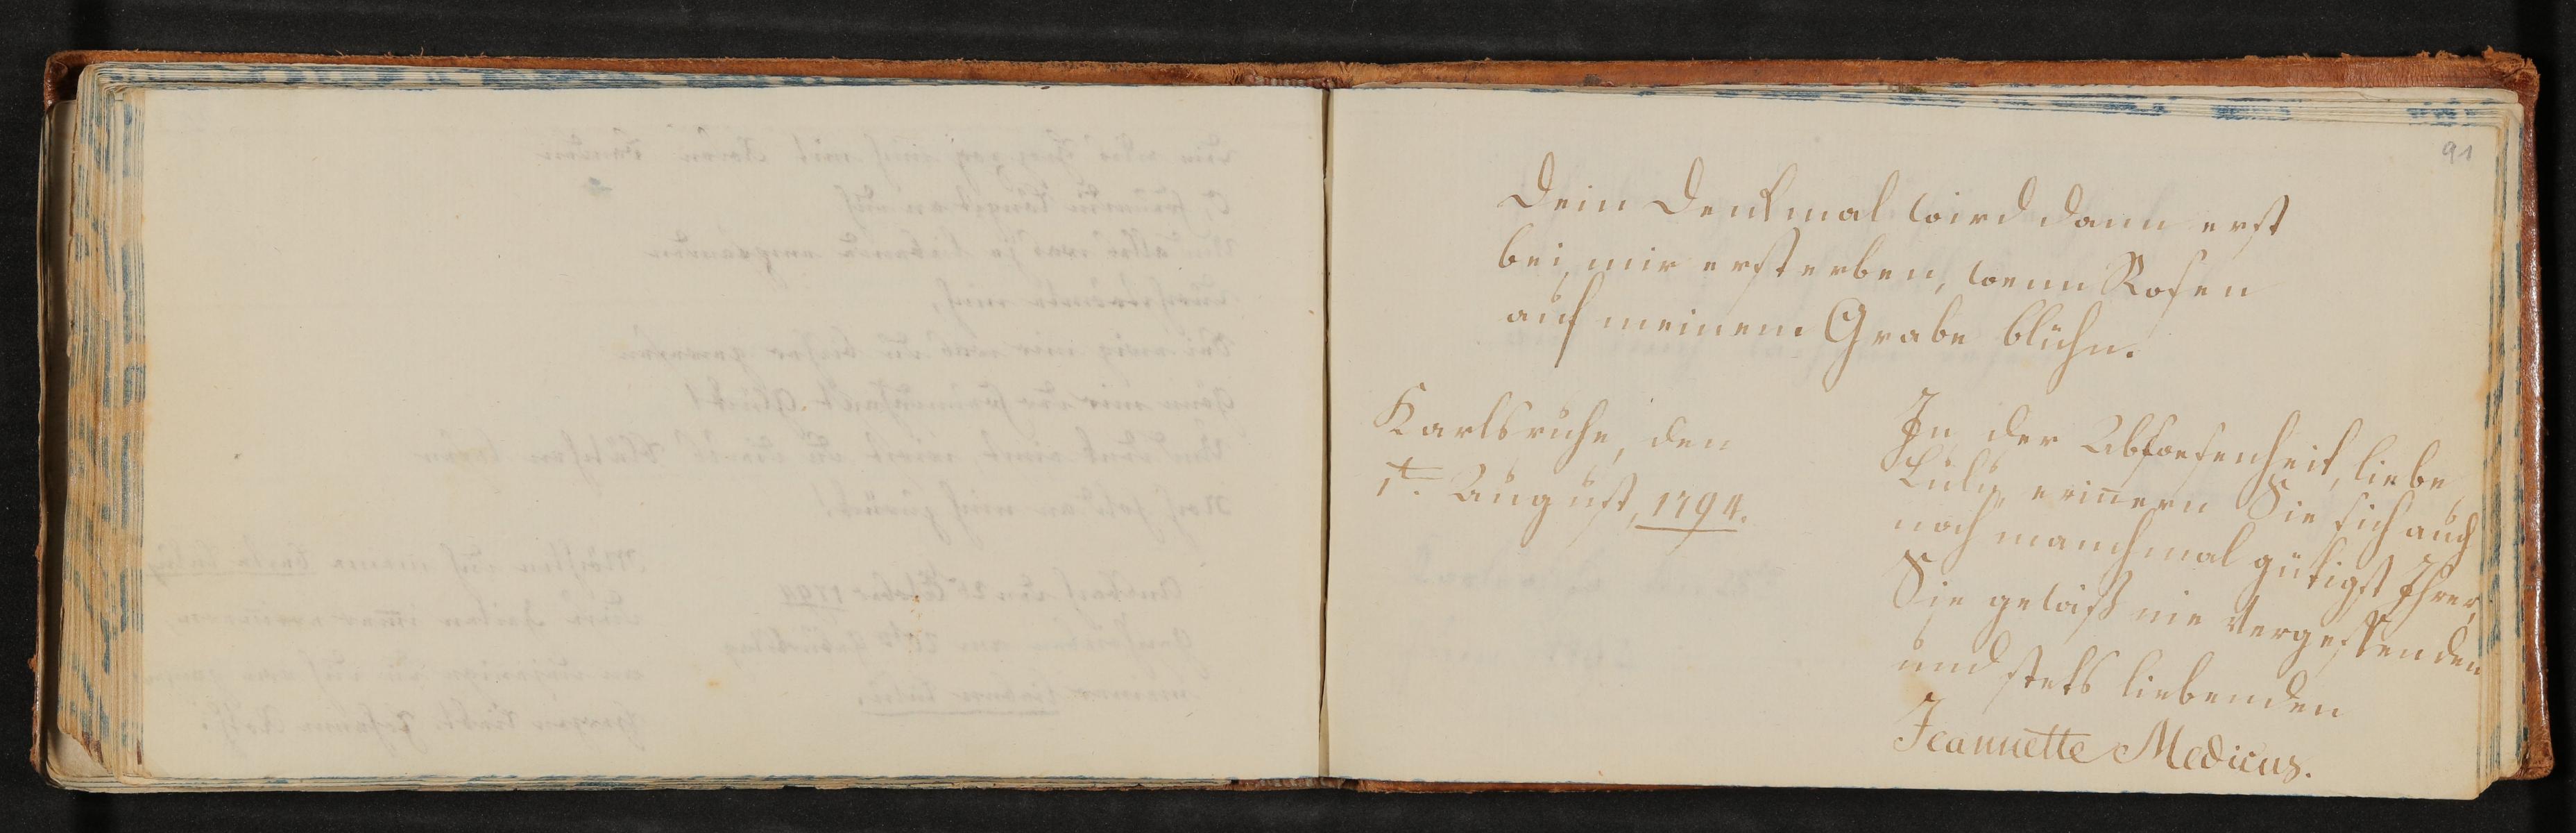 91
Dein Denkmal wird dann erst
bei mir ersterben, wenn Rosen
auf meinem Grabe blühn.
Karlsruhe, den
1t. August, 1794.
In der Abwesenheit, liebe
Luly, erinern Sie sich auch
noch manchmal gütigst Ihrer,
Sie gewiß nie Vergessenden
und stets liebenden
Jeannette Medicus.